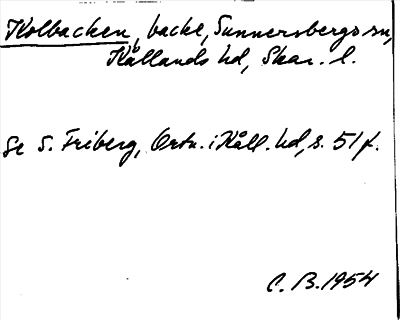 Kolbacken, backe, Sunnersbergs sn,
Kållands hd, Skar. l.
Se S. Friberg, Ortn. i Kåll. hd, s. 51 f.
C. B. 1954